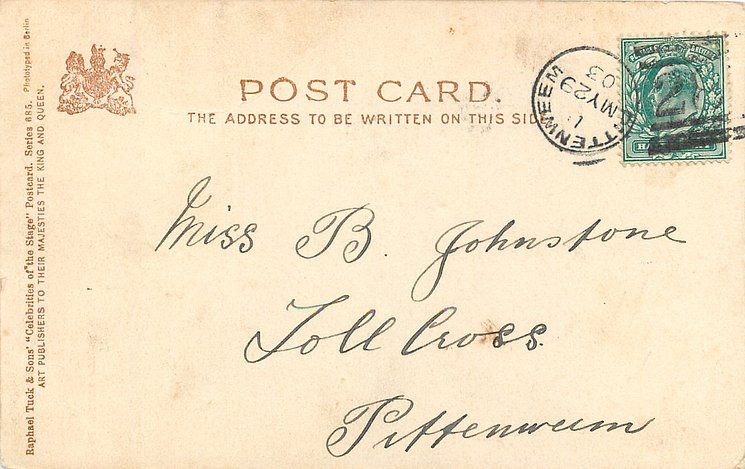 POST CARD.
THE ADDRESS TO BE WRITTEN ON THIS SID
PITTENWEEM
MY 29
03
2
Miss B. Johnstone
Toll Cross.
Pittenweem
Raphael Tuck & Sons' "Celebrities of the Stage" Postcard. Series 685. Phototyped in Berlin
ART PUBLISHERS TO THEIR MAJESTIES THE KING AND QUEEN.